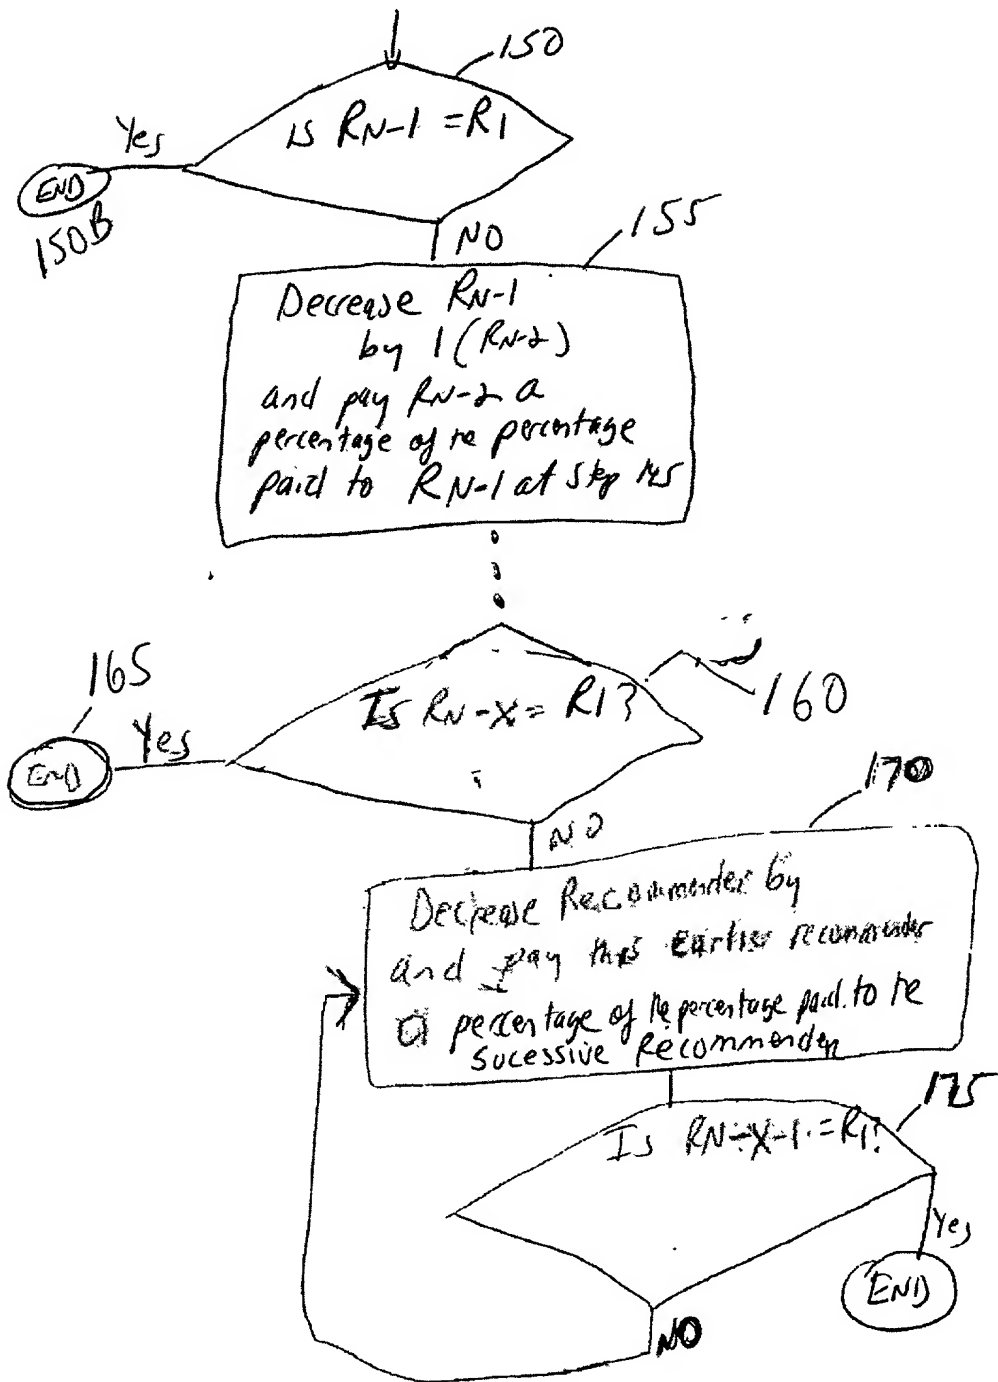 150
Is RN-1 = R1
Yes
END
150B
NO
155
Decrease RN-1
by 1 (RN-2)
and pay RN-2 a
percentage of te percentage
paid to RN-1 at step
165
Yes
END
Is RN-X = R1?
160
NO
170
Decrease Recommender by
and pay this earlier recommender
a percentage of te percentage paid to te
sucessive Recommender
175
Is RN-X-1 = R1?
Yes
END
NO